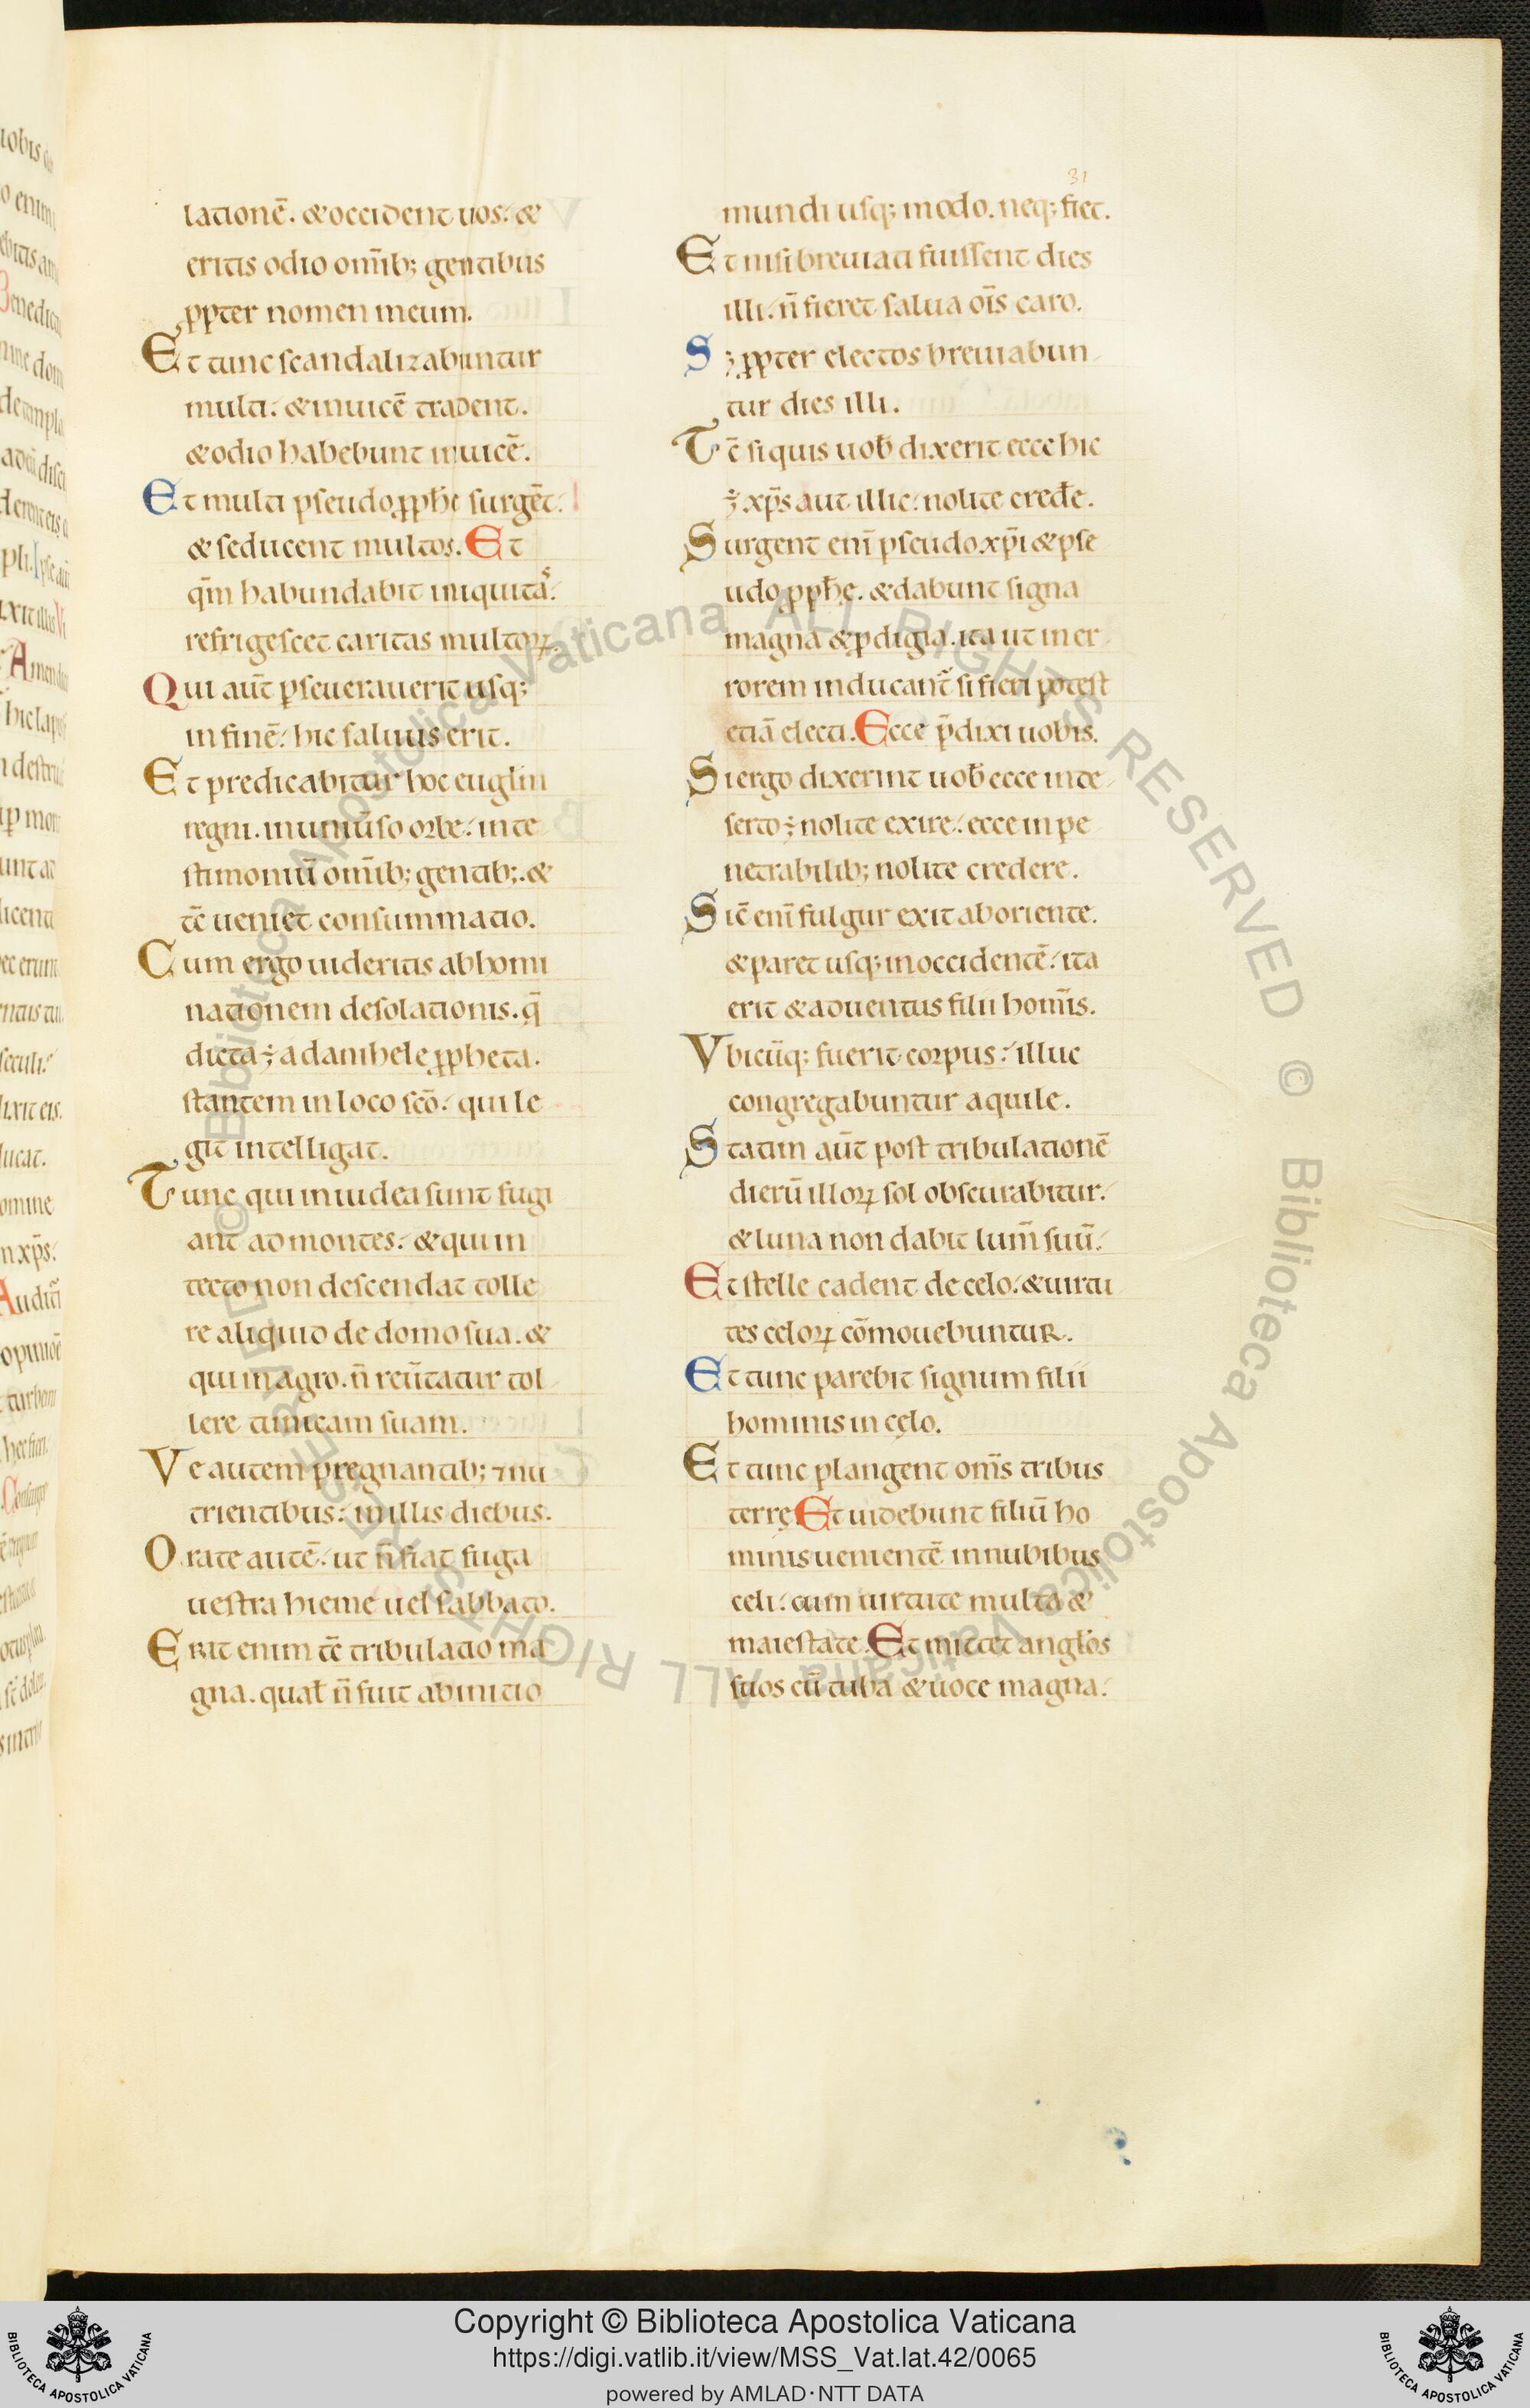 31
lationē. & occident uos. &
eritis odio om̄ib; gentibus
ꝓpter nomen meum.
Et tunc scandalizabuntur
multi. & inuicē tradent.
& odio habebunt inuicē.
Et multi pseudoꝓph̄e surgēt.
& seducent multos. Et
qm̄ habundabit iniquitas.
refrigescet caritas multoꝝ.
Qui aut̄ ꝑseuerauerit usq;
in finē. hic saluus erit.
Et predicabitur hoc euglīn
regni. in uniūso orbe. in te
stimoniū om̄ib; gentib;. &
tc̄ ueniet consummatio.
Cum ergo uideritis abhomi
nationem desolationis. q̄
dicta ÷ a danihele ꝓpheta.
stantem in loco scō. qui le
git intelligat.
Tunc qui in iudea sunt fugi
ant ad montes. & qui in
tecto non descendat tolle
re aliquid de domo sua. &
qui in agro. n̄ reūtatur tol
lere tunicam suam.
Ve autem pregnantib; ⁊ nu
trientibus. in illis diebus.
Orate autē. ut n̄ fiat fuga
uestra hieme uel sabbato.
Erit enim tc̄ tribulatio ma
gna. qual̄ n̄ fuit ab initio
mundi usq; modo. neq; fiet.
Et nisi breuiati fuissent dies
illi. n̄ fieret salua oīs caro.
S; ꝓpter electos breuiabun
tur dies illi.
Tc̄ si quis uob̄ dixerit ecce hic
÷ xp̄s aut illic. nolite cred̄e.
Surgent enī pseudo xp̄i & pse
udo ꝓph̄ę. & dabunt signa
magna & ꝓdigia. ita ut in er
rorem inducant̄ si fieri potest
etiā electi. Ecce p̄dixi uobis.
Si ergo dixerint uob̄ ecce in de
serto ÷ nolite exire. ecce in pe
netrabilib; nolite credere.
Sic̄ enī fulgur exit ab oriente.
& paret usq; in occidentē. ita
erit & aduentus filii hom̄is.
Vbicūq; fuerit corpus. illuc
congregabuntur aquile.
Statim aut̄ post tribulationē
dierū illoꝝ sol obscurabitur.
& luna non dabit lum̄ suū.
Et stelle cadent de celo. & uirtu
tes celoꝝ cōmouebuntur.
Et tunc parebit signum filii
hominis in cęlo.
Et tunc plangent om̄s tribus
terrę Et uidebunt filiū ho
minis uenientē in nubibus
celi. cum uirtute multa &
maiestate. Et mittet angłos
suos cū tuba & uoce magna.
© Biblioteca Apostolica Vaticana ALL RIGHTS RESERVED
© Biblioteca Apostolica Vaticana ALL RIGHTS RESERVED
Copyright © Biblioteca Apostolica Vaticana
https://digi.vatlib.it/view/MSS_Vat.lat.42/0065
powered by AMLAD·NTT DATA
BIBLIOTECA APOSTOLICA VATICANA
BIBLIOTECA APOSTOLICA VATICANA